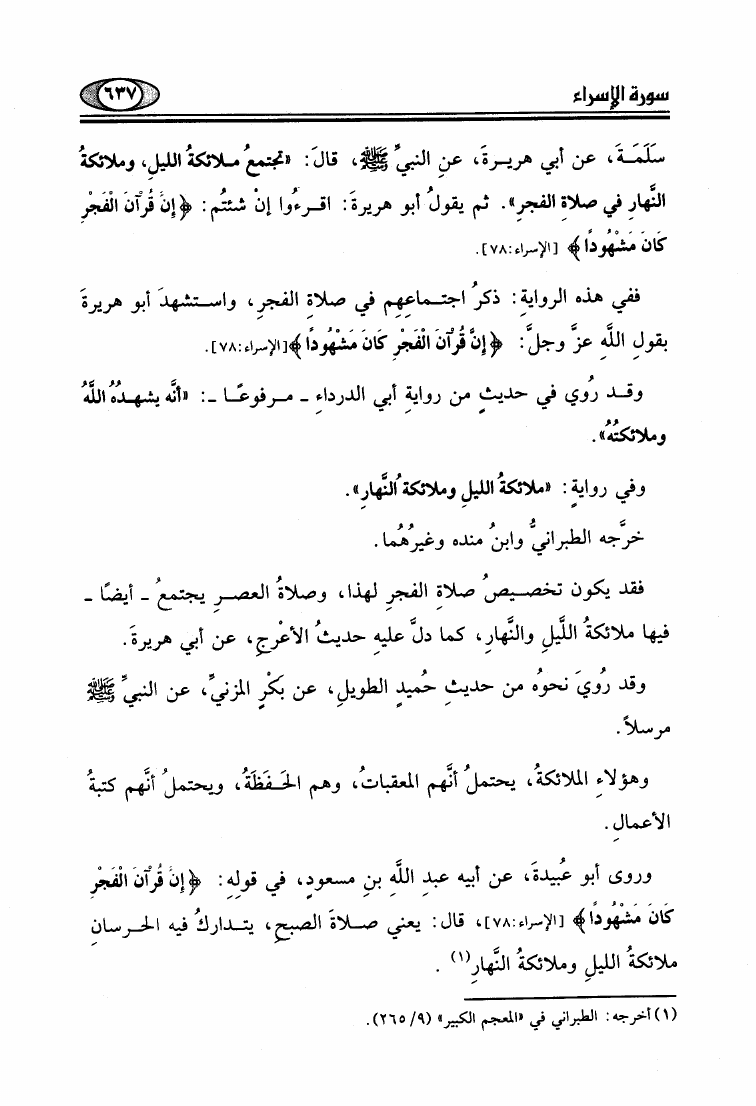 سورة الإسراء
٦٣٧
سَلَمَـةَ، عن أبي هريـرةَ، عنِ النبيِّ ﷺ، قالَ: «تجتمعُ مـلائكةُ الليلِ، وملائكةُ
النَّهارِ في صلاةِ الفجرِ». ثم يقولُ أبو هريرةَ: اقـرءُوا إنْ شئتُم: ﴿إِنَّ قُرْآنَ الْفَجْرِ
كَانَ مَشْهُودًا﴾ [الإسراء:٧٨].
ففي هذه الروايةِ: ذكرُ اجتـماعِهِم في صلاةِ الفجرِ، واستـشهدَ أبو هريرةَ
بقولِ اللَّهِ عزَّ وجلَّ: ﴿إِنَّ قُرْآنَ الْفَجْرِ كَانَ مَشْهُودًا﴾[الإسراء:٧٨].
وقـد رُوي في حديثٍ من روايةِ أبي الدرداءِ ـ مـرفوعًـا ـ: «أنَّه يشهـدُهُ اللَّهُ
وملائكتُهُ».
وفي روايةٍ: «ملائكةُ الليلِ وملائكةُ النَّهارِ».
خرَّجه الطبرانيُّ وابنُ منده وغيرُهُما.
فقد يكون تخصـيصُ صلاةِ الفجرِ لهذا، وصلاةُ العصـرِ يجتمعُ ـ أيضًا ـ
فيها ملائكةُ اللَّيلِ والنَّهارِ، كما دلَّ عليه حديثُ الأعْرجِ، عن أبي هريرةَ.
وقد رُويَ نحوُه من حديثِ حُميدِ الطويلِ، عن بَكْرٍ المزنيِّ، عن النبيِّ ﷺ
مرسلاً.
وهؤلاءِ الملائكةُ، يحتملُ أنَّهم المعقباتُ، وهم الحَـفَظَةُ، ويحتملُ أنَّهم كتبةُ
الأعمالِ.
وروى أبو عُبيدةَ، عن أبيه عبدِ اللَّهِ بنِ مسعودٍ، في قولِهِ: ﴿إِنَّ قُرْآنَ الْفَجْرِ
كَانَ مَشْهُودًا﴾ [الإسراء:٧٨]، قال: يعني صـلاةَ الصبحِ، يتـداركُ فيه الحـرسانِ
ملائكةُ الليلِ وملائكةُ النَّهارِ(١) .
(١) أخرجه: الطبراني في «المعجم الكبير» (٩/ ٢٦٥).